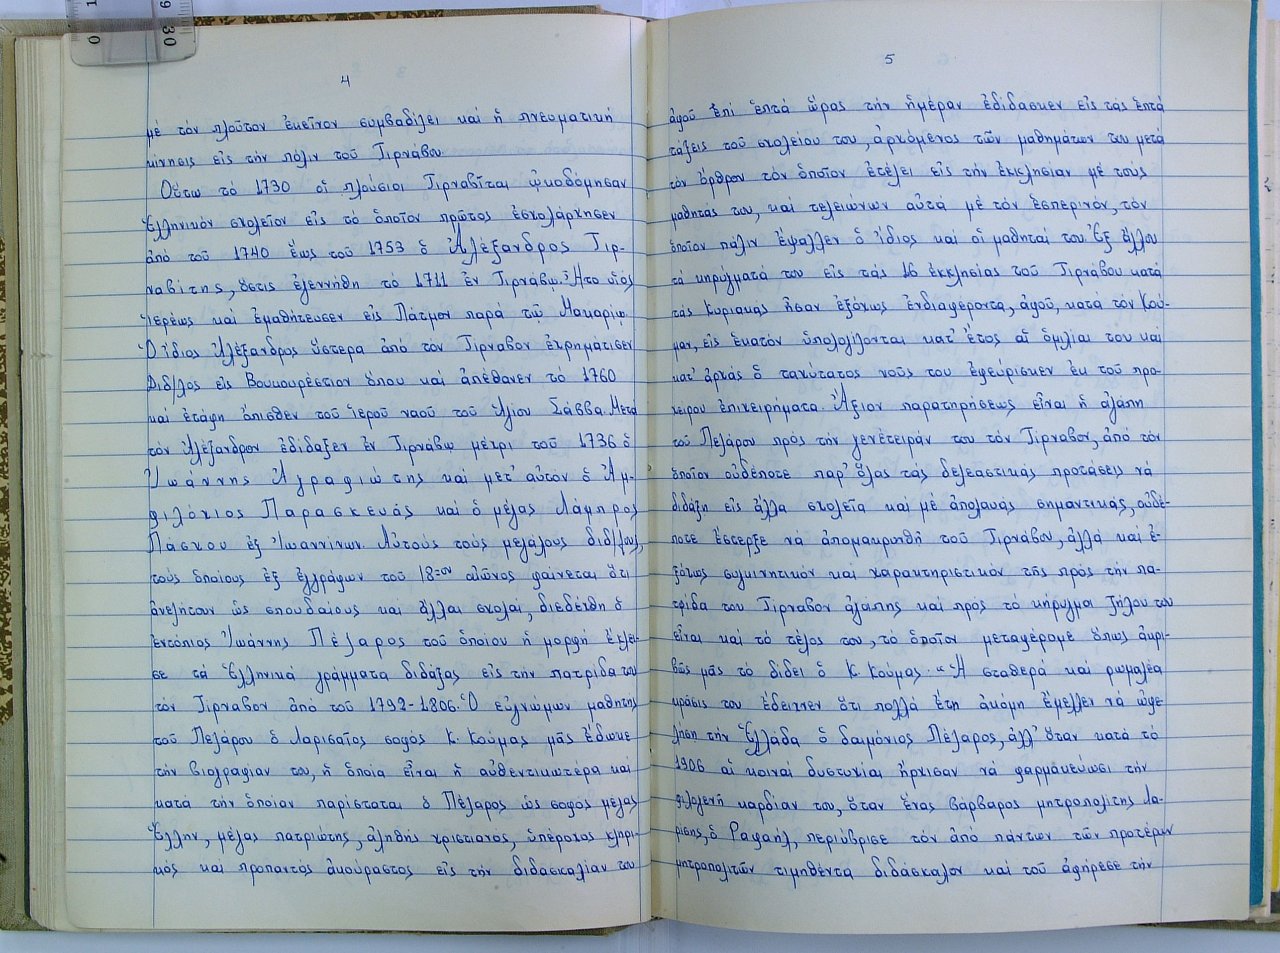 4
μέ τόν πλοῦτον ἐκεῖνον συμβαδίζει καί ἡ πνευματική
κίνησις εἰς τήν πόλιν τοῦ Τιρνάβου
Οὕτω τό 1730 οἱ πλούσιοι Τιρναβῖται ᾠκοδόμησαν
Ἑλληνικόν σχολεῖον εἰς τό ὁποῖον πρῶτος ἐσχολάρχησεν
ἀπό τοῦ 1740 ἕως τοῦ 1753 ὁ Ἀλέξανδρος Τιρ-
ναβίτης, ὅστις ἐγεννήθη τό 1711 ἐν Τιρνάβῳ. Ἦτο υἱός
ἱερέως καί ἐμαθήτευσεν εἰς Πάτμον παρά τῷ Μακαρίῳ.
Ὁ ἴδιος Ἀλέξανδρος ὕστερα ἀπό τόν Τίρναβον ἐχρημάτισεν
διδ/λος εἰς Βουκουρέστιον ὅπου καί ἀπέθανεν τό 1760
καί ἐτάφη ὄπισθεν τοῦ ἱεροῦ ναοῦ τοῦ Ἁγίου Σάββα. Μετά
τόν Ἀλέξανδρον ἐδίδαξεν ἐν Τιρνάβῳ μέχρι τοῦ 1736 ὁ
Ἰωάννης Ἀγραφιώτης καί μετ' αὐτόν ὁ Ἀμ-
φιλόχιος Παρασκευάς καί ὁ μέγας Λάμπρος
Πάσχου ἐξ Ἰωαννίνων. Αὐτούς τούς μεγάλους διδ/λους,
τούς ὁποίους ἐξ ἐγγράφων τοῦ 18=ου αἰῶνος φαίνεται ὅτι
ἀνεζήτουν ὡς σπουδαίους καί ἄλλαι σχολαί, διεδέχθη ὁ
ἐντόπιος Ἰωάννης Πέζαρος τοῦ ὁποίου ἡ μορφή ἔκλει-
σε τά Ἑλληνικά γράμματα διδάξας εἰς τήν πατρίδα του
τόν Τίρναβον ἀπό τοῦ 1792-1806. Ὁ εὐγνώμων μαθητής
τοῦ Πεζάρου ὁ Λαρισαῖος σοφός Κ. Κούμας μᾶς ἔδωκε
τήν βιογραφίαν του, ἡ ὁποία εἶναι ἡ αὐθεντικωτέρα καί
κατά τήν ὁποίαν παρίσταται ὁ Πέζαρος ὡς σοφός μέγας
Ἕλλην, μέγας πατριώτης, ἀληθής χριστιανός, ὑπέροχος κληρι-
κός καί προπαντός ἀκούραστος εἰς τήν διδασκαλίαν του
5
ἀφοῦ ἐπί ἑπτά ὥρας τήν ἡμέραν ἐδίδασκεν εἰς τάς ἑπτά
τάξεις τοῦ σχολείου του, ἀρχόμενος τῶν μαθημάτων του μετά
τόν ὄρθρον τόν ὁποῖον ἐτέλει εἰς τήν ἐκκλησίαν μέ τούς
μαθητάς του, καί τελειώνων αὐτά μέ τόν ἑσπερινόν, τόν
ὁποῖον πάλιν ἔψαλλεν ὁ ἴδιος καί οἱ μαθηταί του. Ἐξ ἄλλου
τά κηρύγματά του εἰς τάς 16 ἐκκλησίας τοῦ Τιρνάβου κατά
τάς Κυριακάς ἦσαν ἐξόχως ἐνδιαφέροντα, ἀφοῦ, κατά τόν Κού-
μαν, εἰς ἑκατόν ὑπολογίζονται κατ' ἔτος αἱ ὁμιλίαι του καί
κατ' ἀρχάς ὁ ταχύτατος νοῦς του ἐφεύρισκεν ἐκ τοῦ προ-
χείρου ἐπιχειρήματα. Ἄξιον παρατηρήσεως εἶναι ἡ ἀγάπη
τοῦ Πεζάρου πρός τήν γενέτειράν του τόν Τίρναβον, ἀπό τόν
ὁποῖον οὐδέποτε παρ' ὅλας τάς δελεαστικάς προτάσεις νά
διδάξῃ εἰς ἄλλα σχολεῖα καί μέ ἀπολαυάς σημαντικάς, οὐδέ-
ποτε ἔστερξε νά ἀπομακρυνθῇ τοῦ Τιρνάβου, ἀλλά καί ἐ-
ξόχως συγκινητικόν καί χαρακτηριστικόν τῆς πρός τήν πα-
τρίδα του Τίρναβον ἀγάπης καί πρός τό κήρυγμα ζήλου του
εἶναι καί τό τέλος του, τό ὁποῖον μεταφέρομε ὅπως ἀκρι-
βῶς μᾶς τό δίδει ὁ Κ. Κούμας. «Ἡ σταθερά καί ρωμαλέα
κράσις του ἐδείκνεν ὅτι πολλά ἔτη ἀκόμη ἔμελλεν νά ὠφε-
λήσῃ τήν Ἑλλάδα ὁ δαιμόνιος Πέζαρος, ἀλλ' ὅταν κατά τό
1906 αἱ κοιναί δυστυχίαι ἤρχισαν νά φαρμακεύωσι τήν
φιλογενῆ καρδίαν του, ὅταν ἕνας βάρβαρος μητροπολίτης Λα-
ρίσης, ὁ Ραφαήλ, περιύβρισε τόν ἀπό πάντων τῶν προτέρων
μητροπολιτῶν τιμηθέντα διδάσκαλον καί τοῦ ἀφῄρεσε τήν